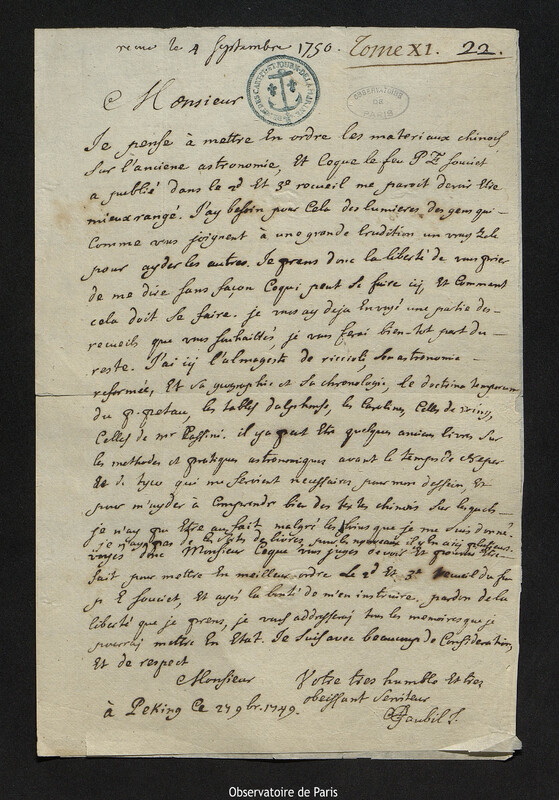 reçue le 4 Septembre 1750. Tome XI. 22.
OBSERVATOIRE DE PARIS
Monsieur
Je pense à mettre En ordre les materiaux chinois
sur l'anciene astronomie, Et Coque le feu P E Souciet
a publié dans le 2d Et 3e recueil me paroit devoir Etre
mieux rangé. J'ay besoin pour Cela des lumieres des gens qui
Comme vous joignent à une grande Erudition un vray Zele
pour ayder les autres. Je prens donc la liberté de vous prier
de me dire sans façon Coqui peut se faire icy, Et Comment
cela doit se faire. je vous ay deja Envoyé une partie des
recueils que vous souhaittés, je vous ferai bien-tot part du
reste. J'ai icy l'almageste de riccioli, Son astronomie
reformée, Et sa geographie et Sa chronologie, le doctrina temporum
du p. petau, les tables dalphonse, les Carolines, Celles de
Celles de mr Cassini. il ya peut Etre quelques anciens livres Sur
les methodes et pratiques astronomiques avant le temps de Keper
Et de tyco qui me seroient necessaires pour mon dessein Et
pour m'ayder à Comprendre bien des textes chinois Sur lesquels
je n'ay pu Etre au fait malgré les soins que je me suis donné.
je n'ay pas de livres, pour les nouveaux il y en a icy plusieurs.
voyés donc Monsieur Coque vous jugés devoir Et pouvoir Etre
fait pour mettre En meilleur ordre le 2d et 3e recueil du feu
p E Souciet, Et ayés la bonté de m'en instruire. pardon de la
liberté que je prens, je vous addresserai tous les memoires que je
pourrai mettre En Etat. Je suis avec beaucoup de Consideration
Et de respect
Monsieur Votre tres humble Et tres
obeissant Serviteur
à Peking Ce 27 9br. 1749. Gaubil J.
Observatoire de Paris